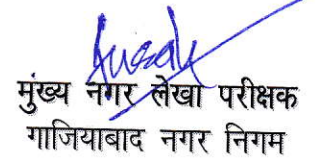 मुख्य नगर लेखा परीक्षक
गाजियाबाद नगर निगम